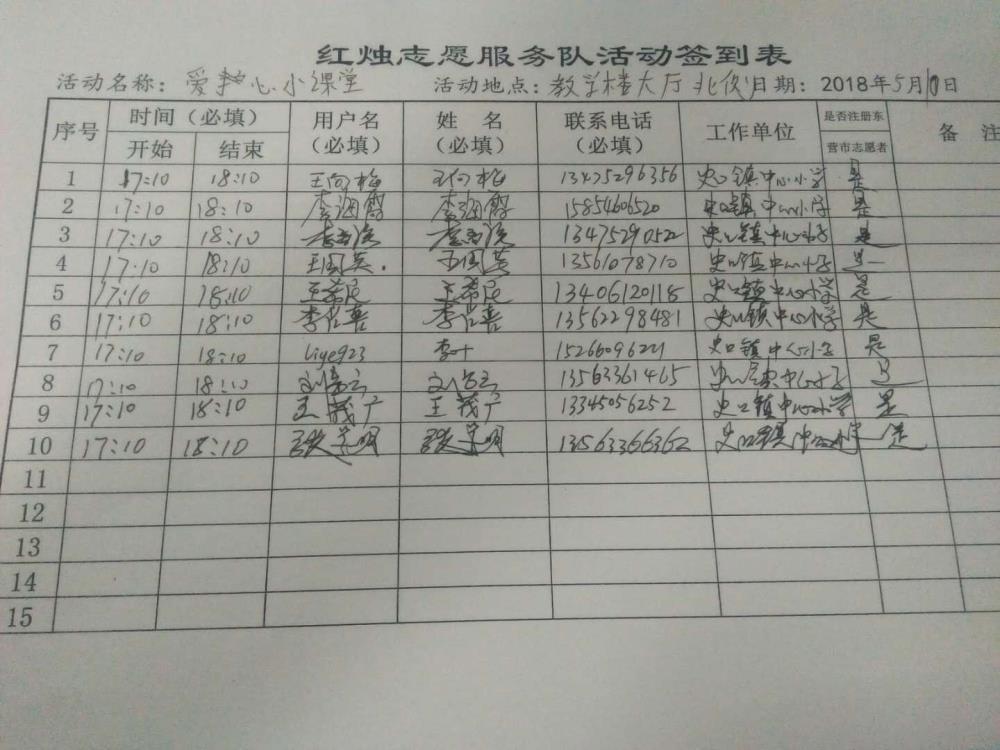 红烛志愿服务队活动签到表
活动名称：爱心小课堂 活动地点：教学楼大厅北侧 日期：2018年5月10日
序号 时间（必填） 用户名（必填） 姓名（必填） 联系电话（必填） 工作单位 是否注册东营市志愿者 备注
开始 结束
1 17:10 18:10 王向梅 王向梅 13475296356 史口镇中心小学 是
2 17:10 18:10 15854606520 史口镇中心小学 是
3 17:10 18:10 13475290522 史口镇中心小学 是
4 17:10 18:10 王国英 王国英 13561078710 史口镇中心小学 是
5 17:10 18:10 13406120118 史口镇中心小学 是
6 17:10 18:10 13562298481 史口镇中心小学 是
7 17:10 18:10 liye923 李叶 史口镇中心小学 是
8 17:10 18:10 13563361465 是
9 17:10 18:10 王茂广 王茂广 13345056252 史口镇中心小学 是
10 17:10 18:10 13563366362 史口镇中心小学 是
11
12
13
14
15